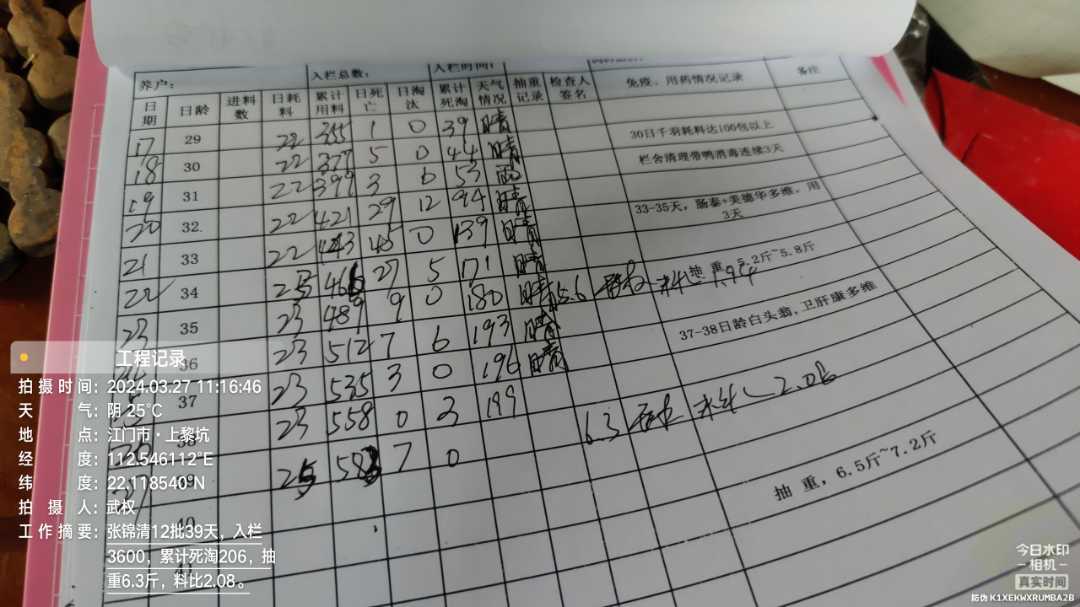 养户: 入栏总数: 入栏时间:
日期 日龄 进料数 日耗料 累计用料 日死亡 日淘汰 累计死淘 天气情况 抽重记录 检查人签名 免疫、用药情况记录 备注
17 29 22 355 1 0 39 晴 30日千羽耗料达100包以上
18 30 22 377 5 0 44 晴 栏舍清理带鸭消毒连续3天
19 31 22 399 3 6 53 雨
20 32 22 421 29 12 94 晴 33-35天，肠泰+美德华多维，用3天
21 33 22 443 45 0 139 晴
22 34 23 466 27 5 171 晴 抽 重，5.2斤~5.8斤
23 35 23 489 9 0 180 晴 5.6
36 23 512 7 6 193 晴 37-38日龄白头翁，卫肝康多维
37 23 535 3 0 196 晴
38 23 558 0 3 199
39 25 583 7 0 6.3 2.08
40 抽 重，6.5斤~7.2斤
41
工程记录
拍摄时间: 2024.03.27 11:16:46
天气: 阴 25℃
地点: 江门市·上黎坑
经度: 112.546112°E
纬度: 22.118540°N
拍摄人: 武权
工作摘要: 张锦清12批39天，入栏
3600，累计死淘206，抽
重6.3斤，料比2.08。
今日水印
-相机-
真实时间
防伪 K1XEKWXRUMBA2B